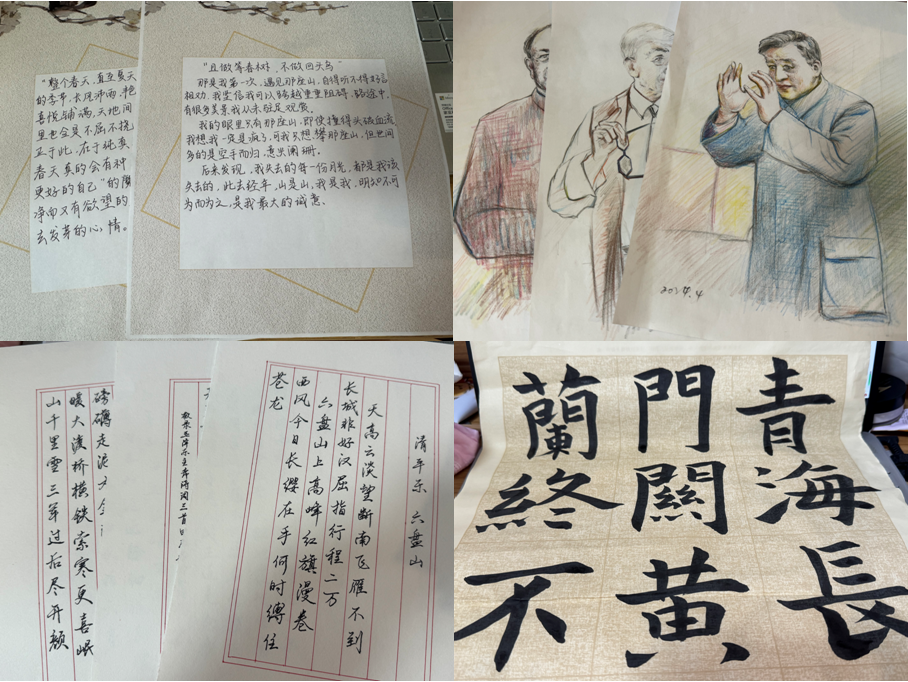 "整个春天,直至夏天
的季节,长风沛雨,艳
喜悦铺满,天地间
里也会是不屈不挠
于此,在于纯真
春天真的会有种
更好的自己"的
净而又有欲望的
去发芽的心情。
"且做等春树,不做回头鸟"
那是我第一次,遇见那座山,自得听不得好言
相劝,我坚信我可以跨越重重阻碍,路途中,
有很多美景我从未驻足观赏。
我的眼里只有那座山,即使撞得头破血流
我想我一定是疯了,可我只想攀那座山,但世间
多的是空手而归,意兴阑珊。
后来发现,我失去的每一份月光,都是我该
失去的,此去经年,山是山,我是我,明知不可
为而为之,是我最大的诚意。
2024.4
清平乐 六盘山
天高云淡望断南飞雁不到
长城非好汉屈指行程二万
六盘山上高峰红旗漫卷
西风今日长缨在手何时缚住
苍龙
敬录毛泽东主席诗词三首
磅礴走泥
暖大渡桥横铁索寒更喜岷
山千里雪三军过后尽开颜
青海長
門關黄
蘭終不